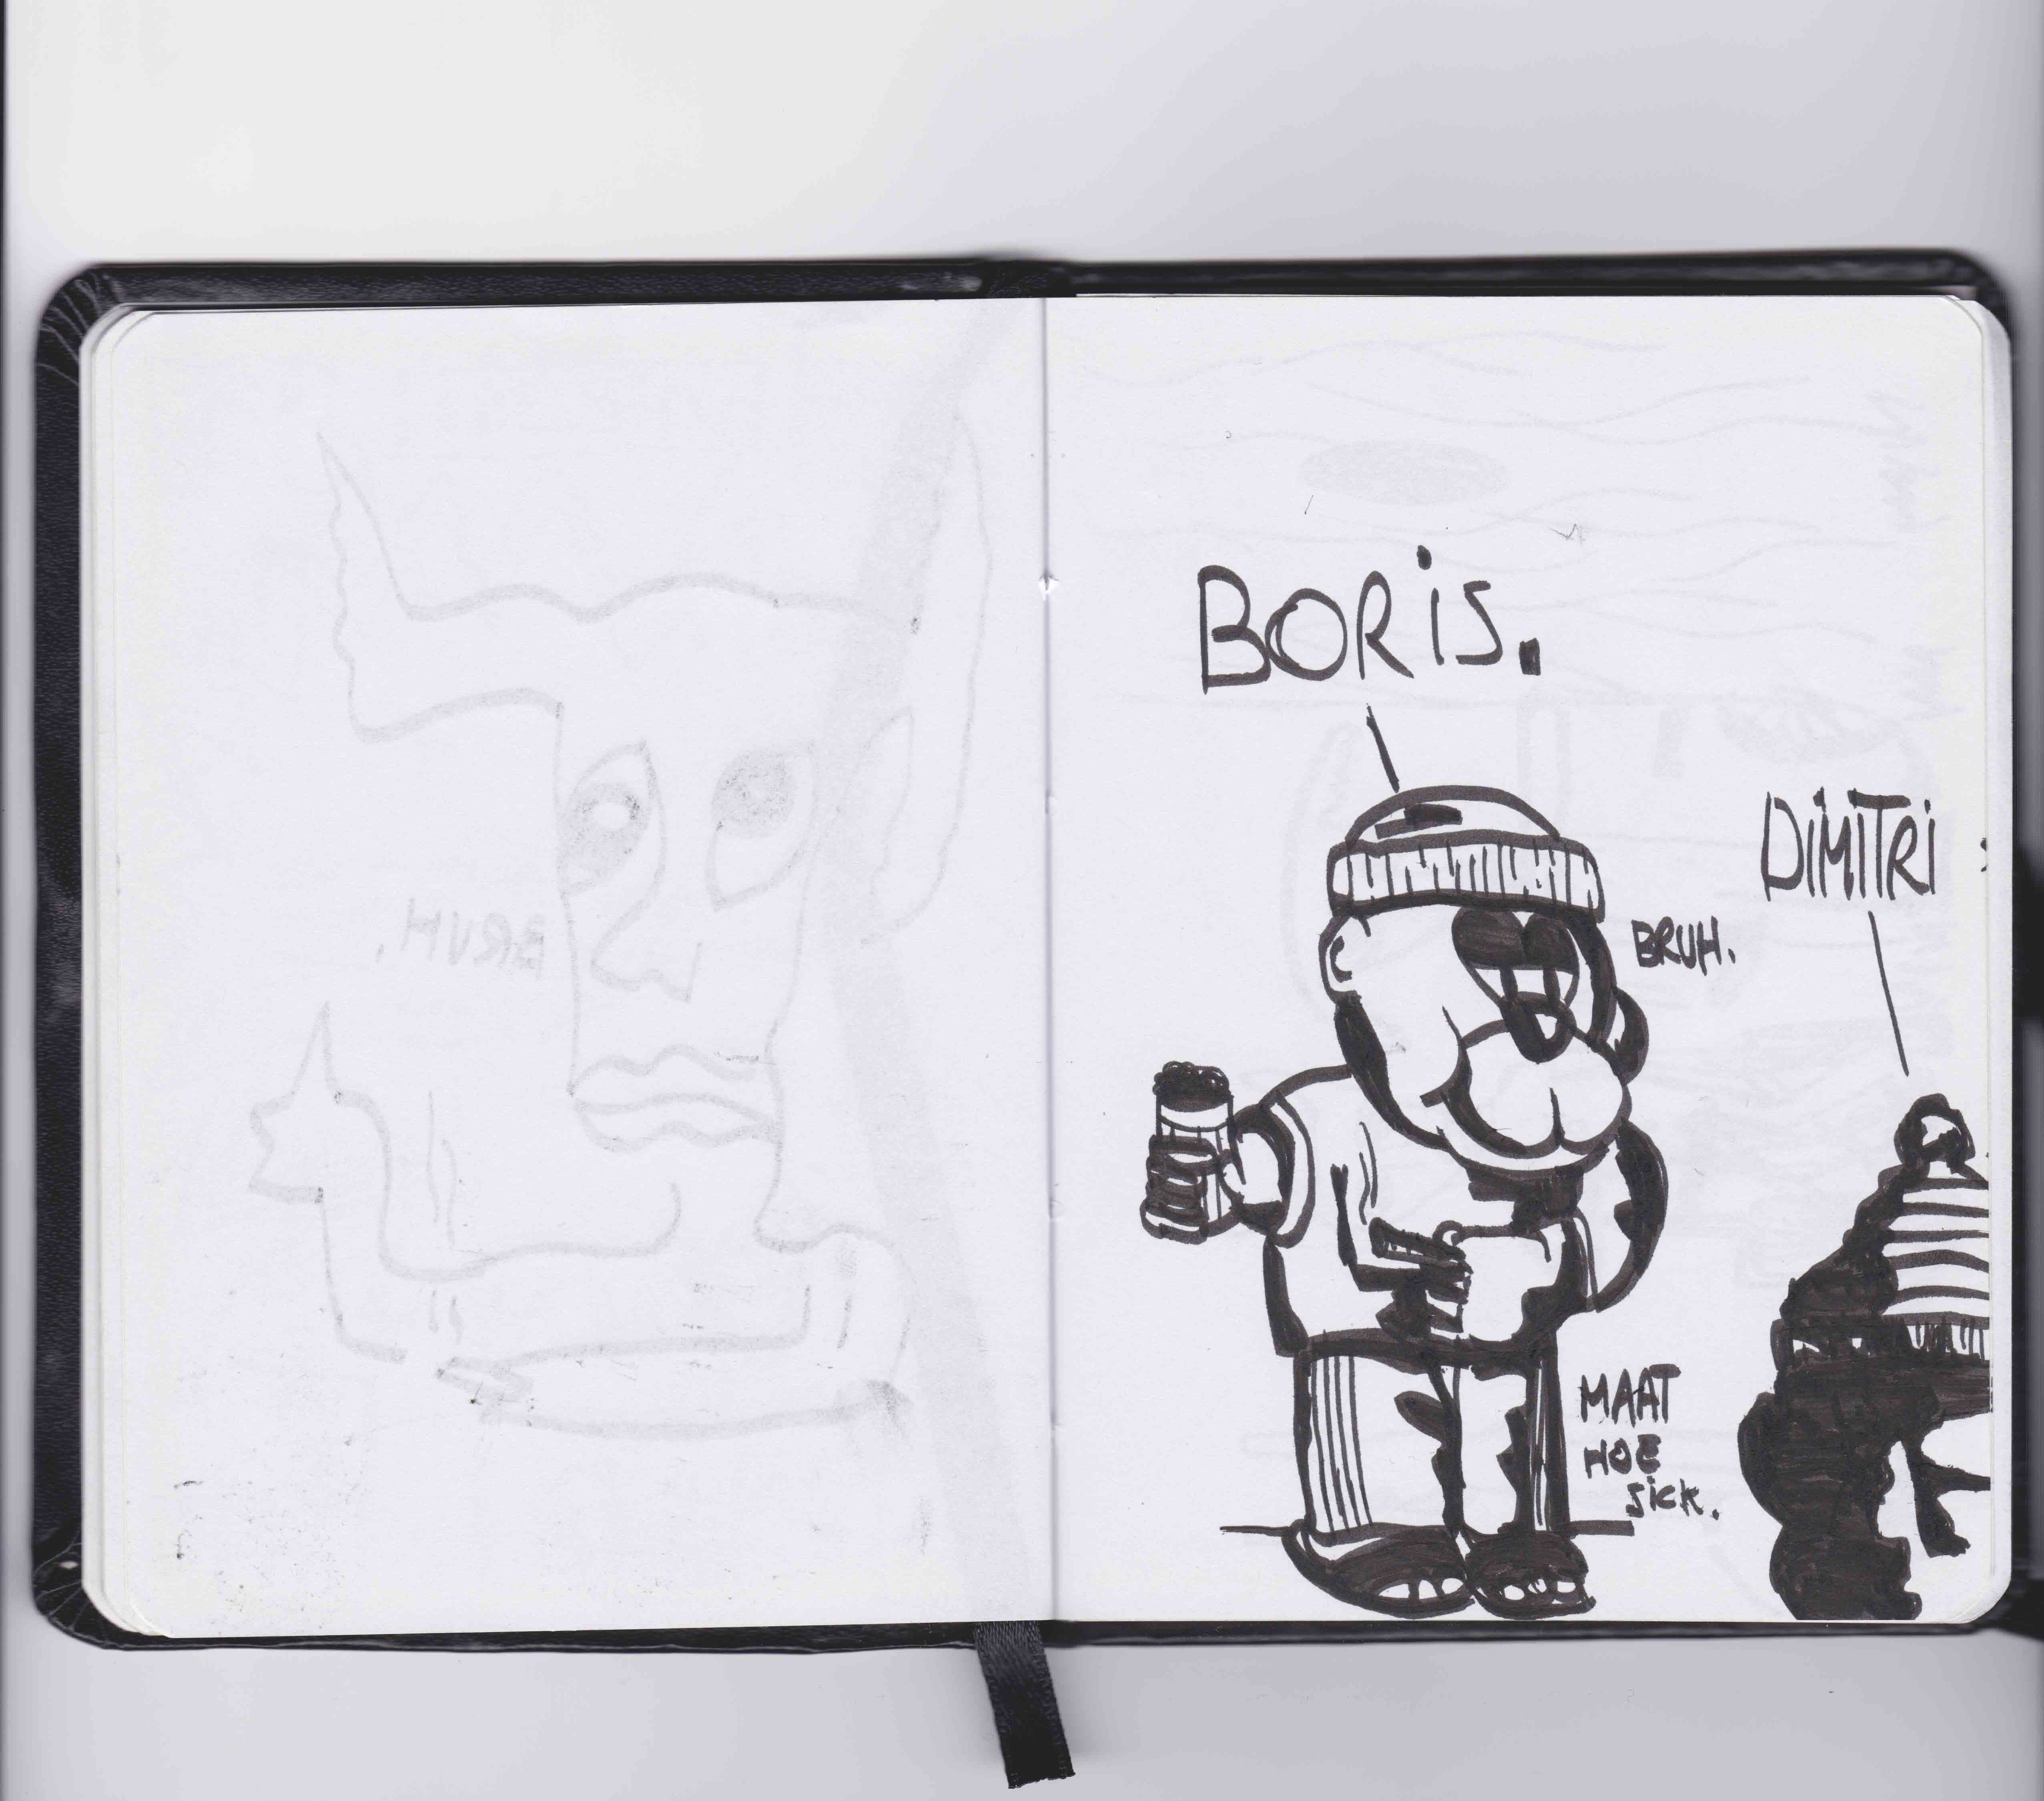 BORiS.
DiMiTRi
BRUH.
MAAT
HOE
SiCK.
BRUH.